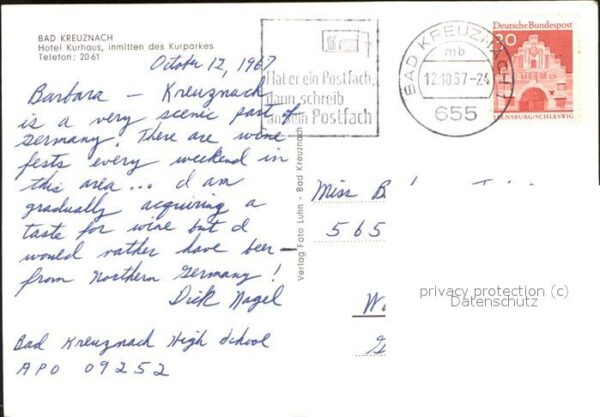 BAD KREUZNACH
Hotel Kurhaus, inmitten des Kurparkes
Telefon: 2061
October 12, 1967
Barbara — Kreuznach
is a very scenic part of
Germany. There are wine
fests every weekend in
this area... I am
gradually acquiring a
taste for wine but I
would rather have beer—
from Northern Germany!
Dick Nagel
Bad Kreuznach High School
APO 09252
Verlag Foto Luhr - Bad Kreuznach
Hat er ein Postfach,
dann schreib
an sein Postfach
BAD KREUZNACH 1
mb
12.10.67-24
655
Deutsche Bundespost
30
FLENSBURG/SCHLESWIG
Miss B
565
privacy protection (c)
Datenschutz